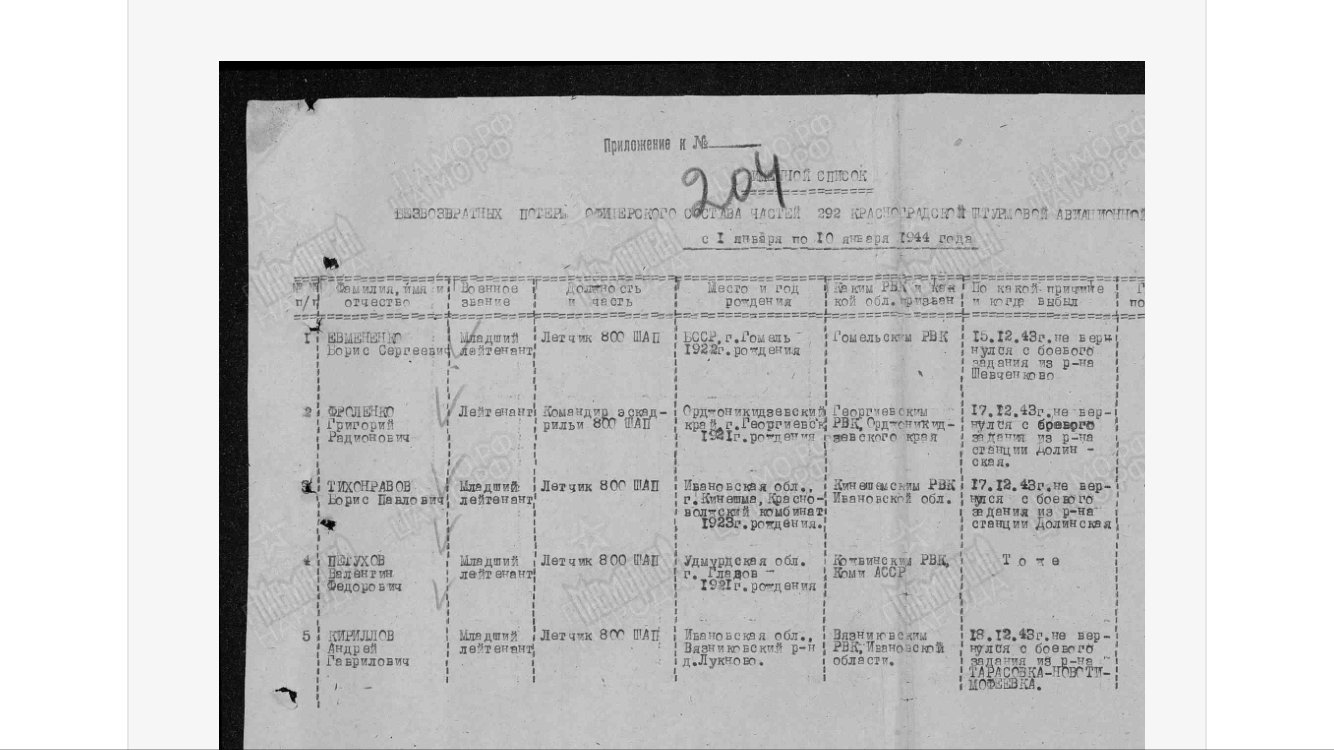 Приложение к №
204
ИМЕННОЙ СПИСОК
БЕЗВОЗВРАТНЫХ ПОТЕРЬ ОФИЦЕРСКОГО СОСТАВА ЧАСТЕЙ 292 КРАСНОГРАДСКОЙ ШТУРМОВОЙ АВИАЦИОННОЙ
с 1 января по 10 января 1944 года
№ п/п Фамилия, имя и отчество Военное звание Должность и часть Место и год рождения Каким РВК и какой обл. призван По какой причине и когда выбыл
1 ЕВМЕНЕНКО Младший Летчик 800 ШАП БССР, г.Гомель Гомельским РВК 15.12.43г.не верн
Борис Сергеевич лейтенант 1922г.рождения нулся с боевого
задания из р-на
Шевченково
2 ФРОЛЕНКО Лейтенант Командир эскад- Орджоникидзевский Георгиевским 17.12.43г.не вер-
Григорий рильи 800 ШАП край,г.Георгиевск РВК,Орджоникид- нулся с боевого
Радионович 1921г.рождения зевского края задания из р-на
станции Долин -
ская.
3 ТИХОНРАВОВ Младший Летчик 800 ШАП Ивановская обл., Кинешемским РВК 17.12.43г.не вер-
Борис Павлович лейтенант г.Кинешма,Красно- Ивановской обл. нулся с боевого
волжский комбинат задания из р-на
1923г.рождения. станции Долинская
4 ПЕТУХОВ Младший Летчик 800 ШАП Удмурдская обл. РВК, Т о ж е
Валентин лейтенант г. Глазов - Коми АССР
Федорович 1921г.рождения
5 КИРИЛЛОВ Младший Летчик 800 ШАП Ивановская обл., Вязниковским 18.12.43г.не вер-
Андрей лейтенант Вязниковский р-н РВК,Ивановской нулся с боевого
Гаврилович д.Лукново. области. задания из р-на
ТАРАСОВКА-НОВОТИ-
МОФЕЕВКА.